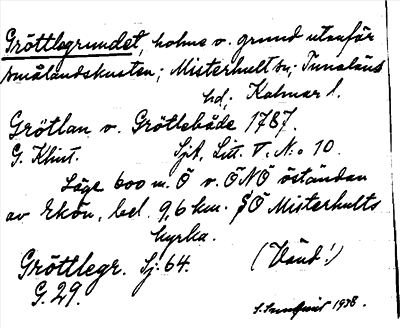 Gröttlegrundet, holme o. grund utanför
smålandskusten; Misterhult sn; Tunaläns
hd; Kalmar l.
Grötlan o. Grötlebåde 1787.
G. Klint. Sjk, Litt. V. N:o 10.
Läge 600 m. Ö o. ÖNÖ östándan
av Ekön, bel. 9,6 km. SÖ Misterhults
kyrka.
Gröttlegr. Sj: 64. (Vänd!)
G. 29.
1938.